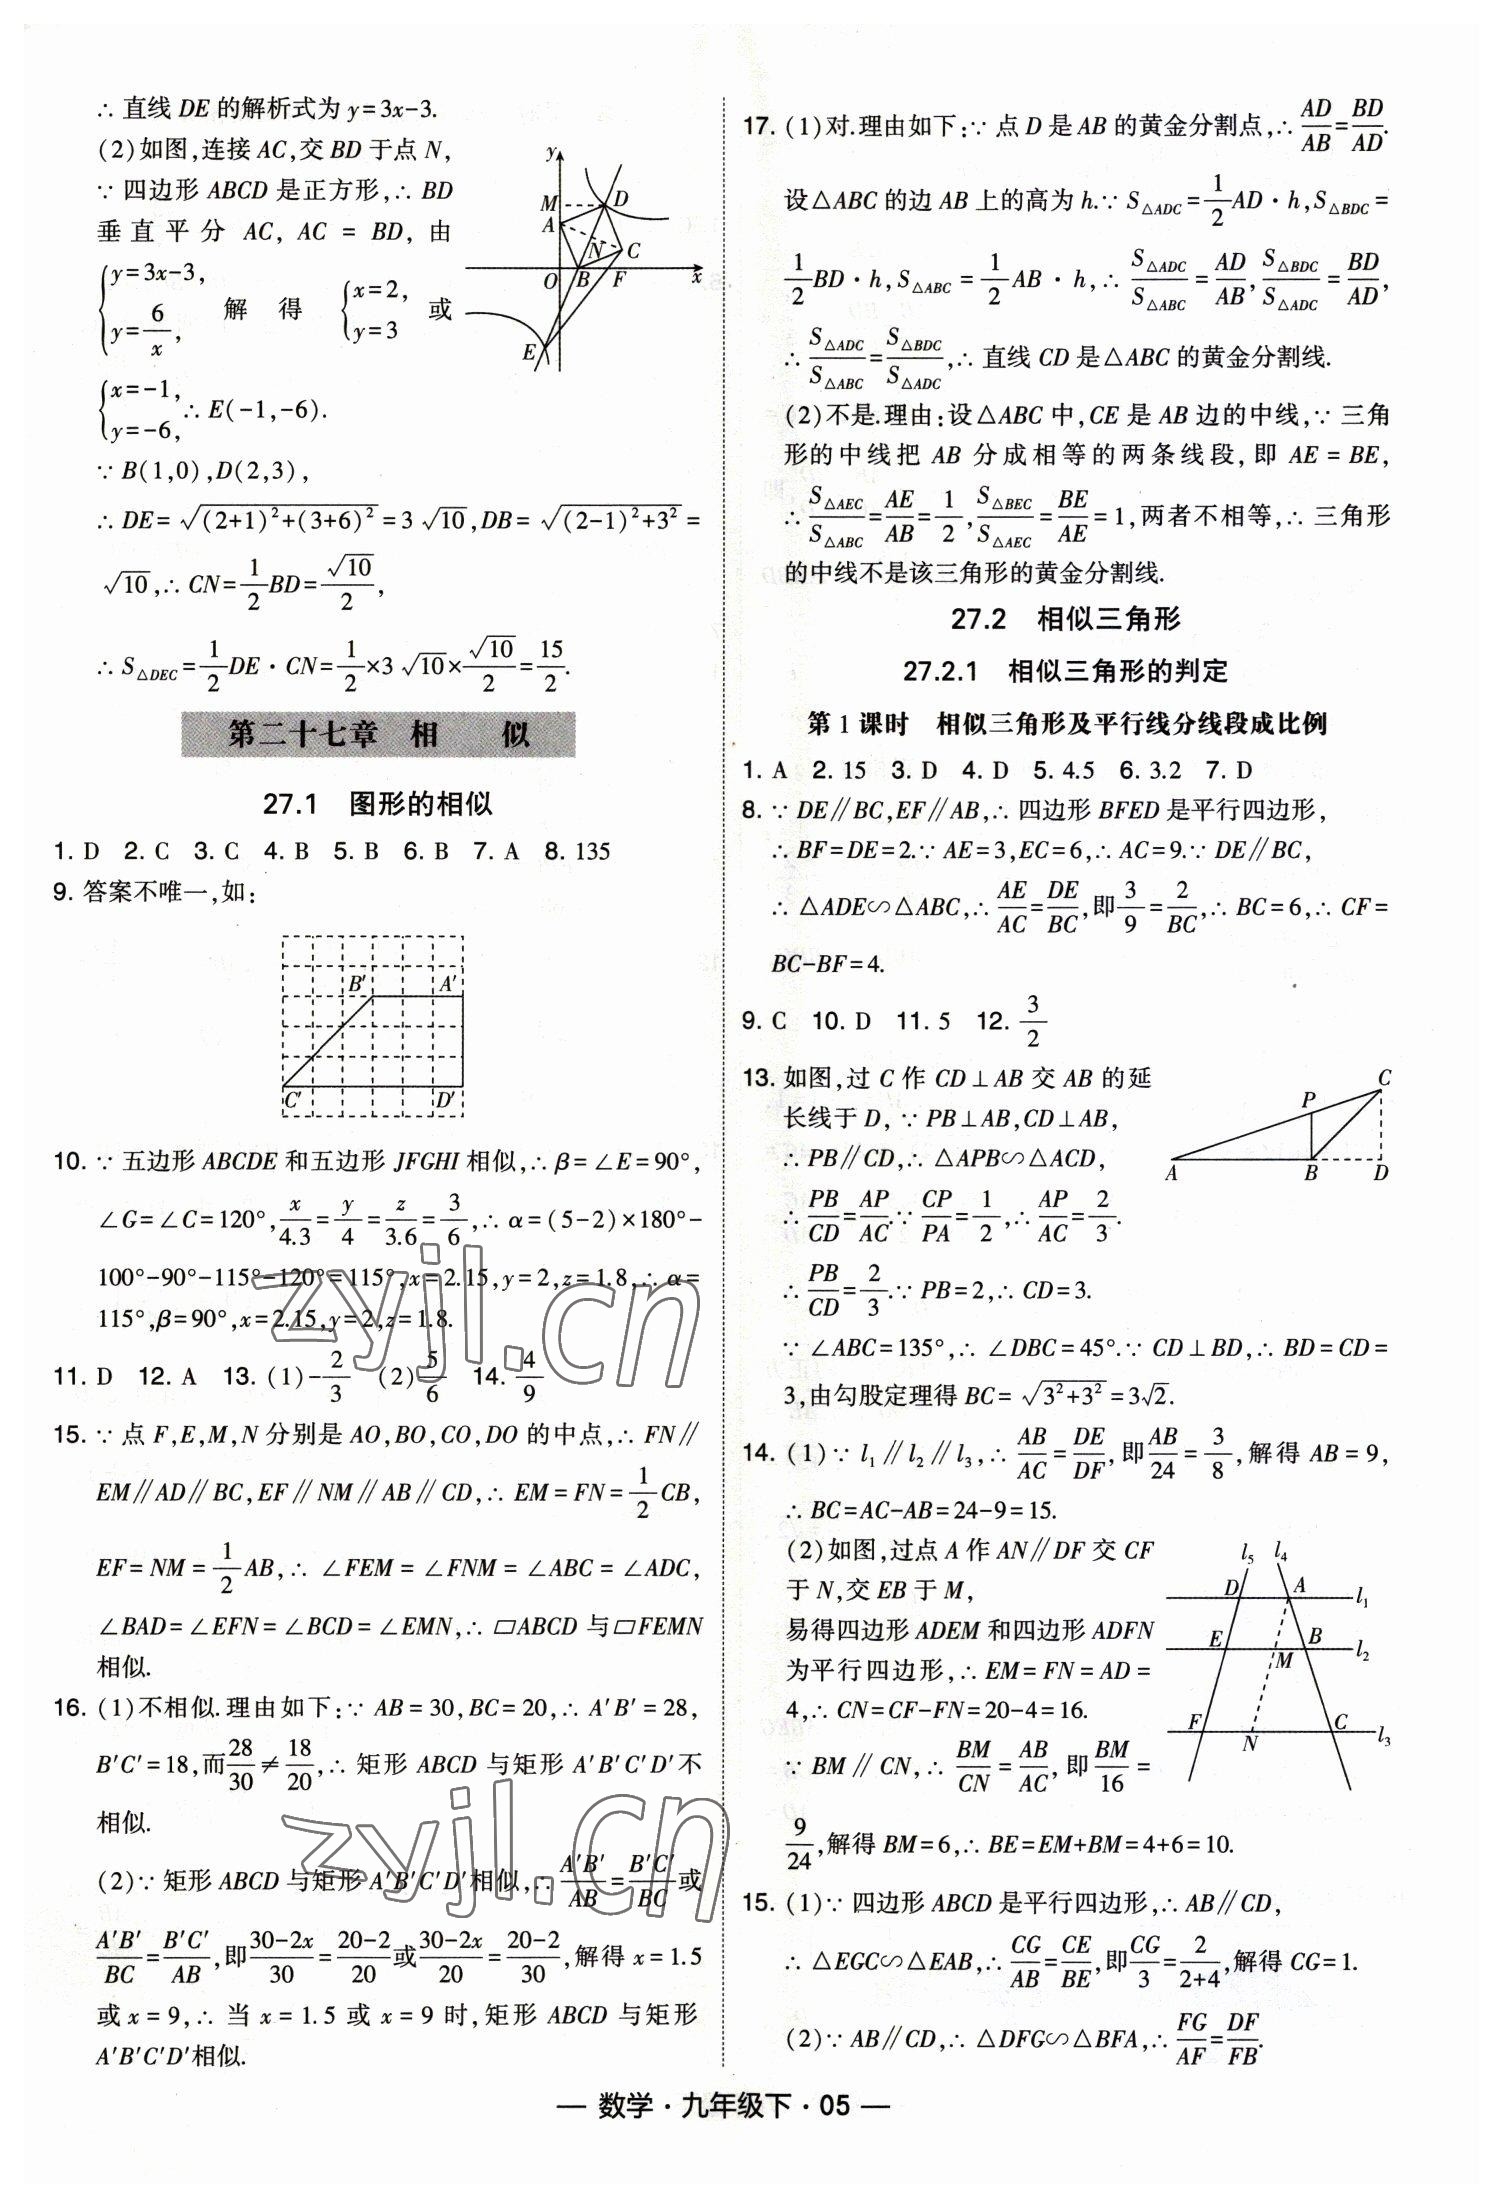 ∴ 直线 DE 的解析式为 y=3x-3.
(2)如图,连接 AC,交 BD 于点 N,
∵ 四边形 ABCD 是正方形,∴ BD
垂直平分 AC, AC = BD, 由
{y=3x-3, y=6/x, 解 得 {x=2, y=3 或
{x=-1, y=-6, ∴ E(-1,-6).
y
M D
A
N C
O B F x
E
∵ B(1,0),D(2,3),
∴ DE=√((2+1)²+(3+6)²)=3√10,DB=√((2-1)²+3²)=
√10,∴ CN=1/2BD=√10/2,
∴ S△DEC=1/2DE·CN=1/2×3√10×√10/2=15/2.
第二十七章 相 似
27.1 图形的相似
1. D 2. C 3. C 4. B 5. B 6. B 7. A 8. 135
9. 答案不唯一,如:
B′ A′
C′ D′
10. ∵ 五边形 ABCDE 和五边形 JFGHI 相似,∴ β=∠E=90°,
∠G=∠C=120°,x/4.3=y/4=z/3.6=3/6,∴ α=(5-2)×180°-
100°-90°-115°-120°=115°,x=2.15,y=2,z=1.8,∴ α=
115°,β=90°,x=2.15,y=2,z=1.8.
11. D 12. A 13. (1)-2/3 (2)5/6 14. 4/9
15. ∵ 点 F,E,M,N 分别是 AO,BO,CO,DO 的中点,∴ FN∥
EM∥AD∥BC,EF∥NM∥AB∥CD,∴ EM=FN=1/2CB,
EF=NM=1/2AB,∴ ∠FEM=∠FNM=∠ABC=∠ADC,
∠BAD=∠EFN=∠BCD=∠EMN,∴ ▱ABCD 与▱FEMN
相似.
16. (1)不相似.理由如下:∵ AB=30,BC=20,∴ A′B′=28,
B′C′=18,而28/30≠18/20,∴ 矩形 ABCD 与矩形 A′B′C′D′不
相似.
(2)∵ 矩形 ABCD 与矩形 A′B′C′D′相似,∴ A′B′/AB=B′C′/BC或
A′B′/BC=B′C′/AB,即(30-2x)/30=(20-2)/20或(30-2x)/20=(20-2)/30,解得 x=1.5
或 x=9,∴ 当 x=1.5 或 x=9 时,矩形 ABCD 与矩形
A′B′C′D′相似.
17. (1)对.理由如下:∵ 点 D 是 AB 的黄金分割点,∴ AD/AB=BD/AD.
设△ABC 的边 AB 上的高为 h.∵ S△ADC=1/2AD·h,S△BDC=
1/2BD·h,S△ABC=1/2AB·h,∴ S△ADC/S△ABC=AD/AB,S△BDC/S△ADC=BD/AD,
∴ S△ADC/S△ABC=S△BDC/S△ADC,∴ 直线 CD 是△ABC 的黄金分割线.
(2)不是.理由:设△ABC 中,CE 是 AB 边的中线,∵ 三角
形的中线把 AB 分成相等的两条线段,即 AE=BE,
∴ S△AEC/S△ABC=AE/AB=1/2,S△BEC/S△AEC=BE/AE=1,两者不相等,∴ 三角形
的中线不是该三角形的黄金分割线.
27.2 相似三角形
27.2.1 相似三角形的判定
第 1 课时 相似三角形及平行线分线段成比例
1. A 2. 15 3. D 4. D 5. 4.5 6. 3.2 7. D
8. ∵ DE∥BC,EF∥AB,∴ 四边形 BFED 是平行四边形,
∴ BF=DE=2.∵ AE=3,EC=6,∴ AC=9.∵ DE∥BC,
∴ △ADE∽△ABC,∴ AE/AC=DE/BC,即3/9=2/BC,∴ BC=6,∴ CF=
BC-BF=4.
9. C 10. D 11. 5 12. 3/2
13. 如图,过 C 作 CD⊥AB 交 AB 的延
长线于 D, ∵ PB⊥AB,CD⊥AB,
∴ PB∥CD,∴ △APB∽△ACD,
∴ PB/CD=AP/AC.∵ CP/PA=1/2,∴ AP/AC=2/3.
∴ PB/CD=2/3.∵ PB=2,∴ CD=3.
C
P
A B D
∵ ∠ABC=135°,∴ ∠DBC=45°.∵ CD⊥BD,∴ BD=CD=
3,由勾股定理得 BC=√(3²+3²)=3√2.
14. (1)∵ l₁∥l₂∥l₃,∴ AB/AC=DE/DF,即AB/24=3/8,解得 AB=9,
∴ BC=AC-AB=24-9=15.
(2)如图,过点 A 作 AN∥DF 交 CF
于 N,交 EB 于 M,
易得四边形 ADEM 和四边形 ADFN
为平行四边形,∴ EM=FN=AD=
4,∴ CN=CF-FN=20-4=16.
∵ BM∥CN,∴ BM/CN=AB/AC,即BM/16=
9/24,解得 BM=6,∴ BE=EM+BM=4+6=10.
l₅ l₄
D A l₁
E B l₂
M
F C l₃
N
15. (1)∵ 四边形 ABCD 是平行四边形,∴ AB∥CD,
∴ △EGC∽△EAB,∴ CG/AB=CE/BE,即CG/3=2/(2+4),解得 CG=1.
(2)∵ AB∥CD,∴ △DFG∽△BFA,∴ FG/AF=DF/FB.
— 数学·九年级下·05 —
zyjl.cn
zyjl.cn